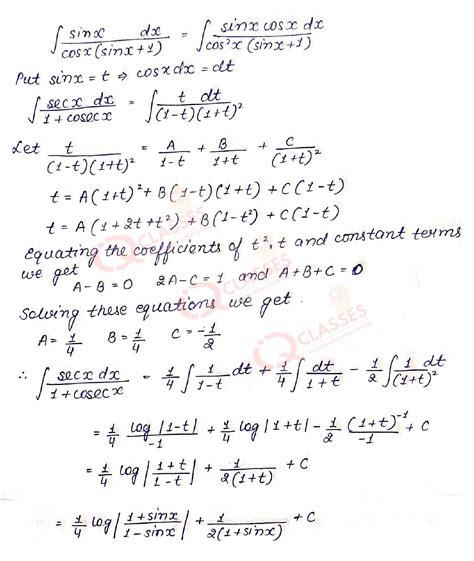 ∫ sinx dx / cosx(sinx+1) = ∫ sinx cosx dx / cos²x (sinx+1)
Put sinx = t ⇒ cosx dx = dt
∫ secx dx / 1+cosecx = ∫ t dt / (1-t)(1+t)²
Let t / (1-t)(1+t)² = A / 1-t + B / 1+t + C / (1+t)²
t = A(1+t)² + B(1-t)(1+t) + C(1-t)
t = A(1+2t+t²) + B(1-t²) + C(1-t)
Equating the coefficients of t², t and constant terms
we get
A-B=0 2A-C=1 and A+B+C=0
Solving these equations we get.
A=1/4 B=1/4 C=-1/2
∴ ∫ secx dx / 1+cosecx - 1/4 ∫ 1/1-t dt + 1/4 ∫ dt/1+t - 1/2 ∫ 1 dt/(1+t)²
= 1/4 log|1-t| / -1 + 1/4 log|1+t| - 1/2 (1+t)⁻¹ / -1 + C
= 1/4 log|1+t / 1-t| + 1 / 2(1+t) + C
= 1/4 log|1+sinx / 1-sinx| + 1 / 2(1+sinx) + C
CLASSES
CLASSES
CLASSES